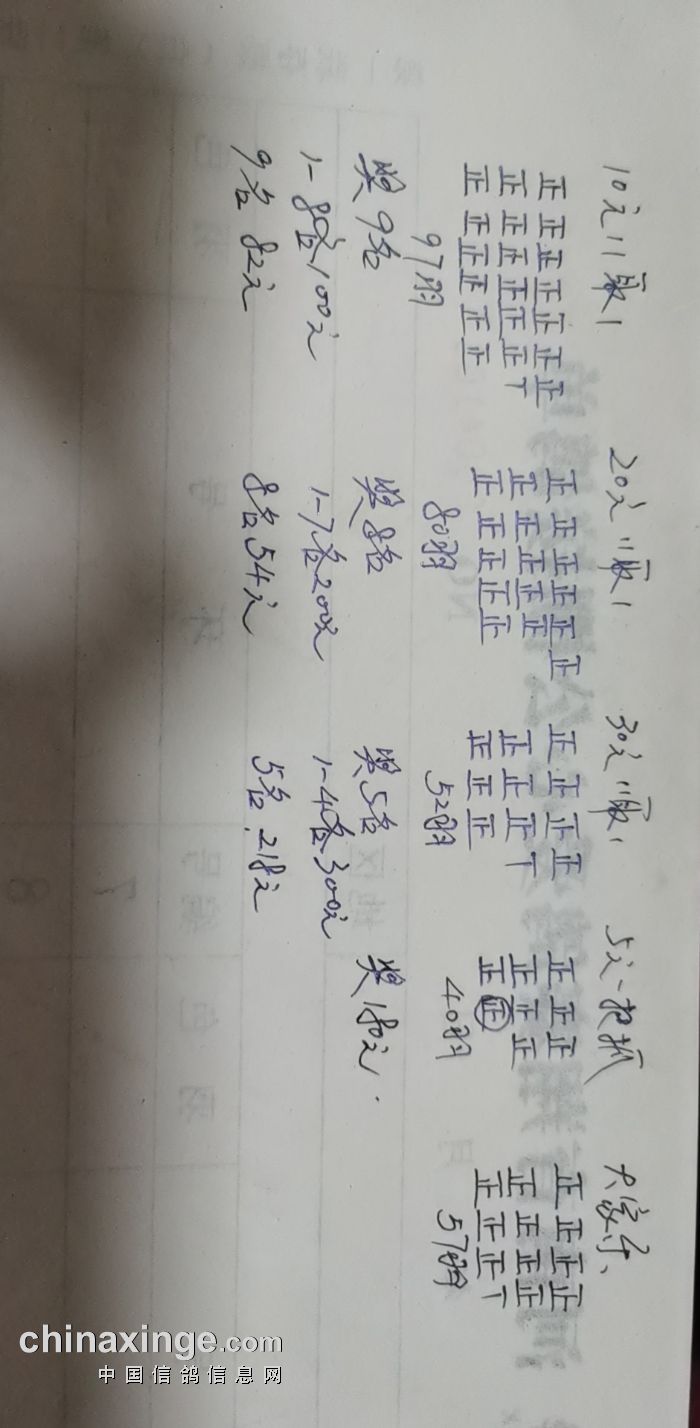 10元11取1
正正正正正正正
正正正正正正丅
正正正正正正
97羽
奖9名
1-8名100元
9名82元
20元11取1
正正正正正正
正正正正正
正正正正正
80羽
奖8名
1-7名200元
8名54元
30元11取1
正正正正
正正正丅
正正正
52羽
奖5名
1-4名300元
5名.218元
5元一把抓
正正正
正正正
正正
40羽
奖180元.
大家乐、
正正正正
正正正正
正正正丅
57羽
chinaxinge.com
中国信鸽信息网